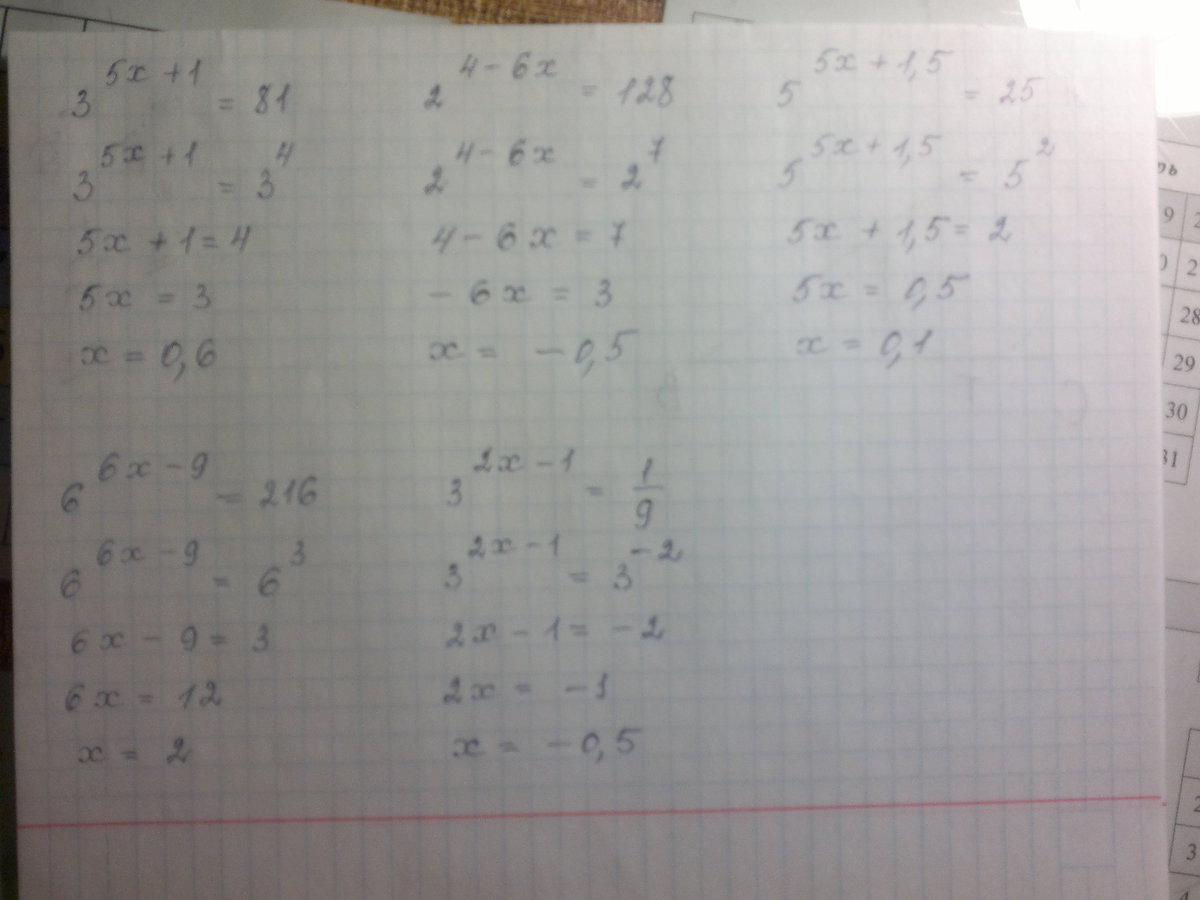 3^{5x+1} = 81
3^{5x+1} = 3^4
5x + 1 = 4
5x = 3
x = 0,6
2^{4-6x} = 128
2^{4-6x} = 2^7
4 - 6x = 7
- 6x = 3
x = -0,5
5^{5x+1,5} = 25
5^{5x+1,5} = 5^2
5x + 1,5 = 2
5x = 0,5
x = 0,1
6^{6x-9} = 216
6^{6x-9} = 6^3
6x - 9 = 3
6x = 12
x = 2
3^{2x-1} = \frac{1}{9}
3^{2x-1} = 3^{-2}
2x - 1 = -2
2x = -1
x = -0,5
9
28
29
30
31
2
3